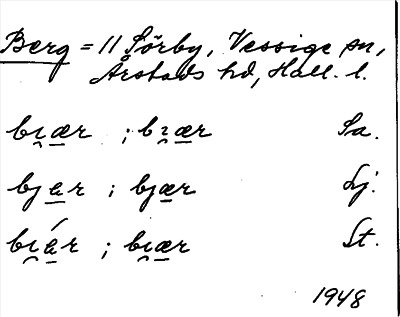 Berg = 11 Sörby, Vessige sn,
Årstads hd, Hall. l.
bı̯ær ; bı̯ær Sa.
bjar ; bjær Lj.
bı̯ár ; bı̯ær St.
1948